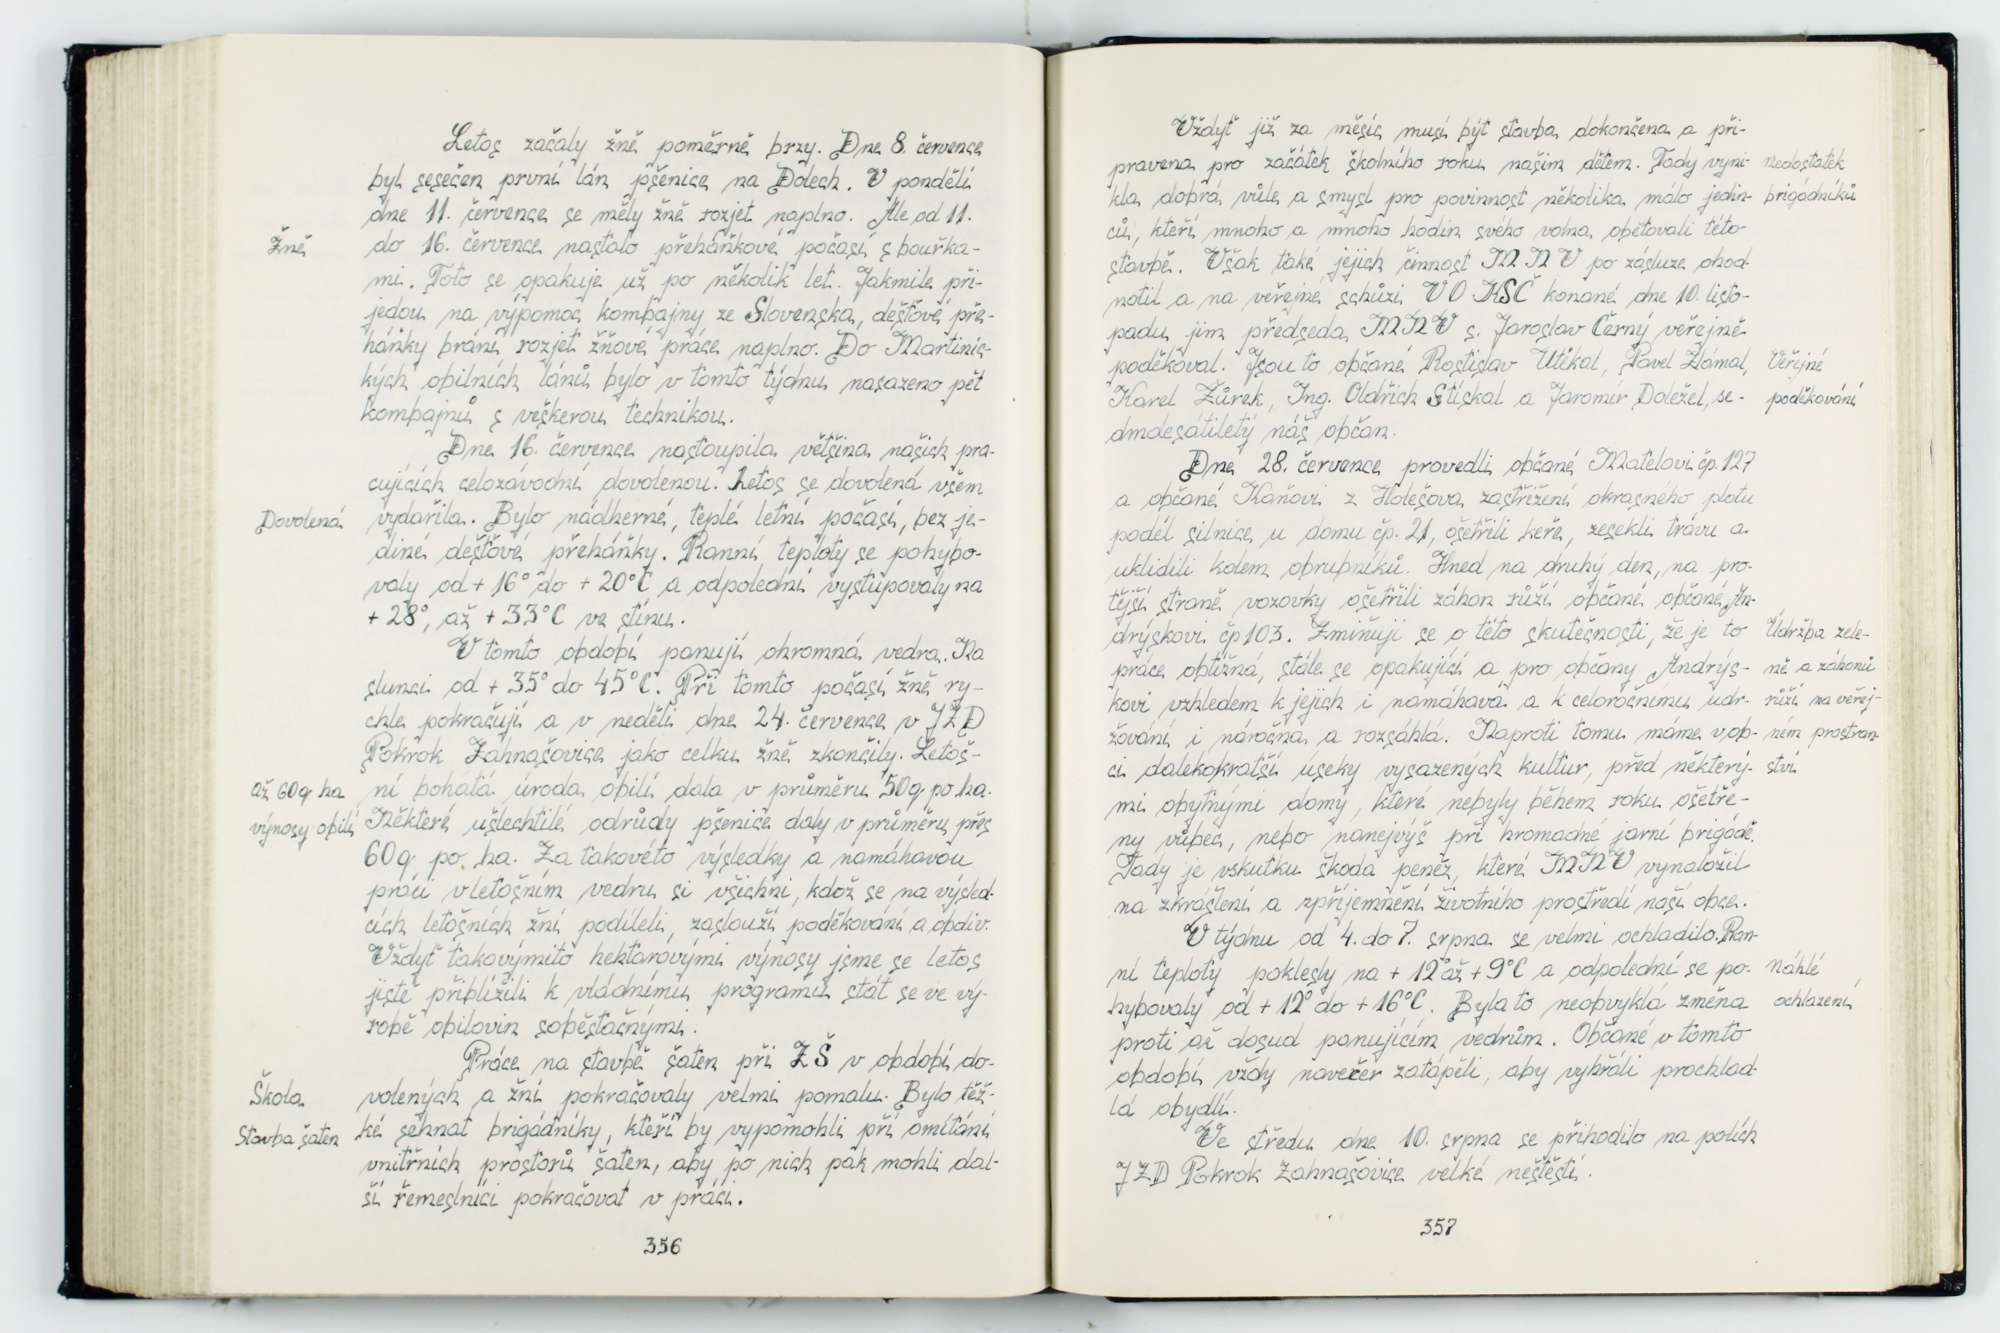 Letos začaly žně poměrně brzy. Dne 8. července
byl sesečen první lán pšenice na Dolech. V pondělí
dne 11. července se měly žně rozjet naplno. Ale od 11.
Žně
do 16. července nastalo přeháňkové počasí s bouřka-
mi. Toto se opakuje už po několik let. Jakmile při-
jedou na výpomoc kombajny ze Slovenska, dešťové pře-
háňky brání rozjet žňové práce naplno. Do Martinic-
kých obilních lánů bylo v tomto týdnu nasazeno pět
kombajnů s veškerou technikou.
Dne 16. července nastoupila většina našich pra-
cujících celozávodní dovolenou. Letos se dovolená všem
Dovolená
vydařila. Bylo nádherné, teplé letní počasí, bez je-
diné dešťové přeháňky. Ranní teploty se pohybo-
valy od + 16° do + 20°C a odpolední vystupovaly na
+ 28°, až + 33°C ve stínu.
V tomto období panují ohromná vedra. Na
slunci od + 35° do 45°C. Při tomto počasí žně ry-
chle pokračují a v neděli dne 24. července v JZD
Pokrok Zahnašovice jako celku žně zkončily. Letoš-
až 60q ha
ní bohatá úroda obilí dala v průměru 50q po ha.
výnosy obilí
Některé ušlechtilé odrůdy pšenice daly v průměru přes
60q po ha. Za takovéto výsledky a namáhavou
práci v letošním vedru si všichni, kdož se na výsled-
cích letošních žní podíleli, zaslouží poděkování a obdiv.
Vždyť takovýmito hektarovými výnosy jsme se letos
jistě přiblížili k vládnímu programu stát se ve vý-
robě obilovin soběstačnými.
Práce na stavbě šaten při ZŠ v období do-
Škola
volených a žní pokračovaly velmi pomalu. Bylo těž-
Stavba šaten
ké sehnat brigádníky, kteří by vypomohli při omítání
vnitřních prostorů šaten, aby po nich pak mohli dal-
ší řemeslníci pokračovat v práci.
356
Vždyť již za měsíc musí být stavba dokončena a při-
pravena pro začátek školního roku našim dětem. Tady vyni-
nedostatek
kla dobrá vůle a smysl pro povinnost několika málo jedin-
brigádníků
ců, kteří mnoho a mnoho hodin svého volna obětovali této
stavbě. Však také jejich činnost MNV po zásluze ohod-
notil a na veřejné schůzi VO KSČ konané dne 10. listo-
padu jim předseda MNV s. Jaroslav Černý veřejně
poděkoval. Jsou to občané Rostislav Utěkal, Pavel Zlámal,
Veřejné
Karel Zůrek, Ing. Oldřich Stískal a Jaromír Doležel, se-
poděkování
dmdesátiletý náš občan.
Dne 28. července provedli občané Matelovi čp. 127
a občané Kaňovi z Holešova zastřižení okrasného plotu
podél silnice u domu čp. 21, ošetřili keře, zesekli trávu a
uklidili kolem obrubníků. Hned na druhý den, na pro-
tější straně vozovky ošetřili záhon růží občané občané An-
drýskovi čp 103. Zmiňuji se o této skutečnosti, že je to
Údržba zele-
práce obtížná, stále se opakující a pro občany Andrýs-
ně a záhonů
kovi vzhledem k jejich i namáhavá a k celoročnímu udr-
růží na veřej-
žování i náročná a rozsáhlá. Naproti tomu máme v ob-
ném prostran-
ci dalekokratší úseky vysazených kultur, před některý-
ství
mi obytnými domy, které nebyly během roku ošetře-
ny vůbec, nebo nanejvýš při hromadné jarní brigádě.
Tady je vskutku škoda peněz, které MNV vynaložil
na zkrášlení a zpříjemnění životního prostředí naší obce.
V týdnu od 4. do 7. srpna se velmi ochladilo. Ran-
ní teploty poklesly na + 12° až + 9°C a odpolední se po-
Náhlé
hybovaly od + 12° do + 16°C. Byla to neobvyklá změna
ochlazení
proti až dosud panujícím vedrům. Občané v tomto
období vždy navečer zatápěli, aby vyhřáli prochlad-
lá obydlí.
Ve středu dne 10. srpna se přihodilo na polích
JZD Pokrok Zahnašovice velké neštěstí.
357